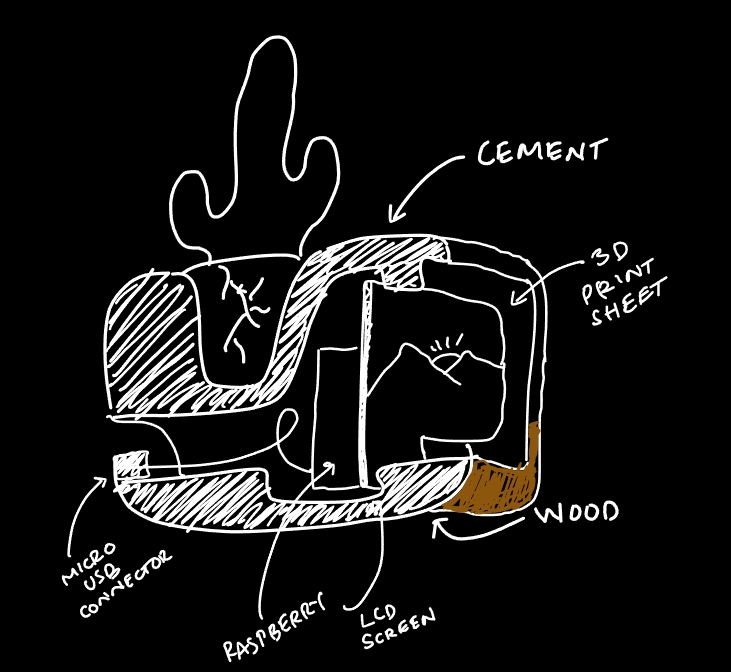 CEMENT
3D
PRINT
SHEET
WOOD
MICRO
USB
CONNECTOR
RASPBERRY
LCD
SCREEN